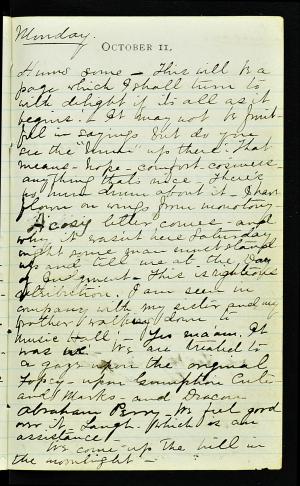 Monday.
OCTOBER 11.
Hums some – This will be a
page which I shall turn to
with delight if its all as it
begins. – It may not be fruit-
ful in sayings but do you
see the "hum" up there. That
means – hope – comfort – cosiness
anything thats nice. There's
no hum drum about it – I have
flown on wings from monotony –
A cosy letter comes – and
why it wasn't here Saturday
night some man must stand
up and tell me at the Day
of Judgment – This is righteous
retribution. I am seen in
company with my sister and my
brother walking down to
Music Hall! – Yes ma'am. It
was we. We are treated to
a gaze upon the original
Topsy – upon
and Marks – and
Abraham Perry – We feel good
over it – Laugh. Which is an
assistance.
We come up the hill in
the moonlight –